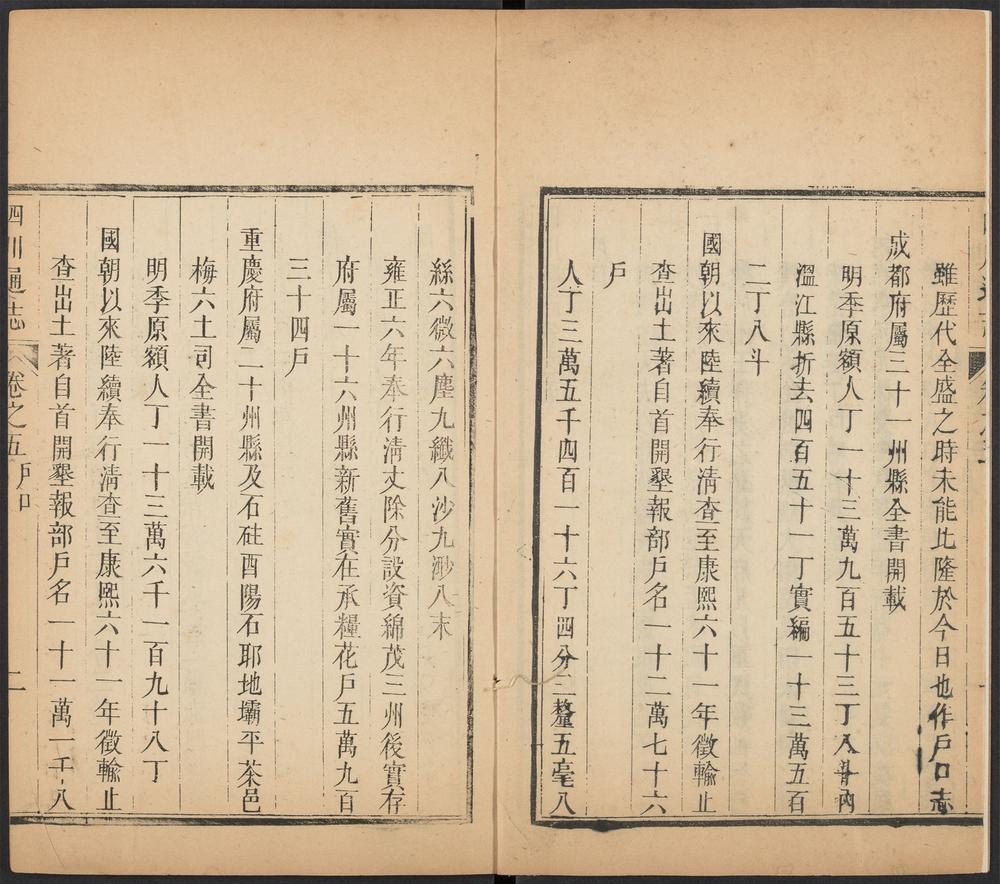 雖歷代全盛之時未能比隆於今日也作戶口志
成都府屬三十一州縣全書開載
明季原額人丁一十三萬九百五十三丁八斗內
溫江縣折去四百五十一丁實編一十三萬五百
二丁八斗
國朝以來陸續奉行清查至康熙六十一年徵輸止
查出土著自首開墾報部戶名一十二萬七十六
戶
人丁三萬五千四百一十六丁四分二釐五毫八
絲六微六塵九纖八沙九渺八末
雍正六年奉行清丈除分設資綿茂三州後實存
府屬一十六州縣新舊實在承糧花戶五萬九百
三十四戶
重慶府屬二十州縣及石砫酉陽石耶地壩平茶邑
梅六土司全書開載
明季原額人丁一十三萬六千一百九十八丁
國朝以來陸續奉行清查至康熙六十一年徵輸止
查出土著自首開墾報部戶名一十一萬一千八
四川通志 卷之五 戶口 二